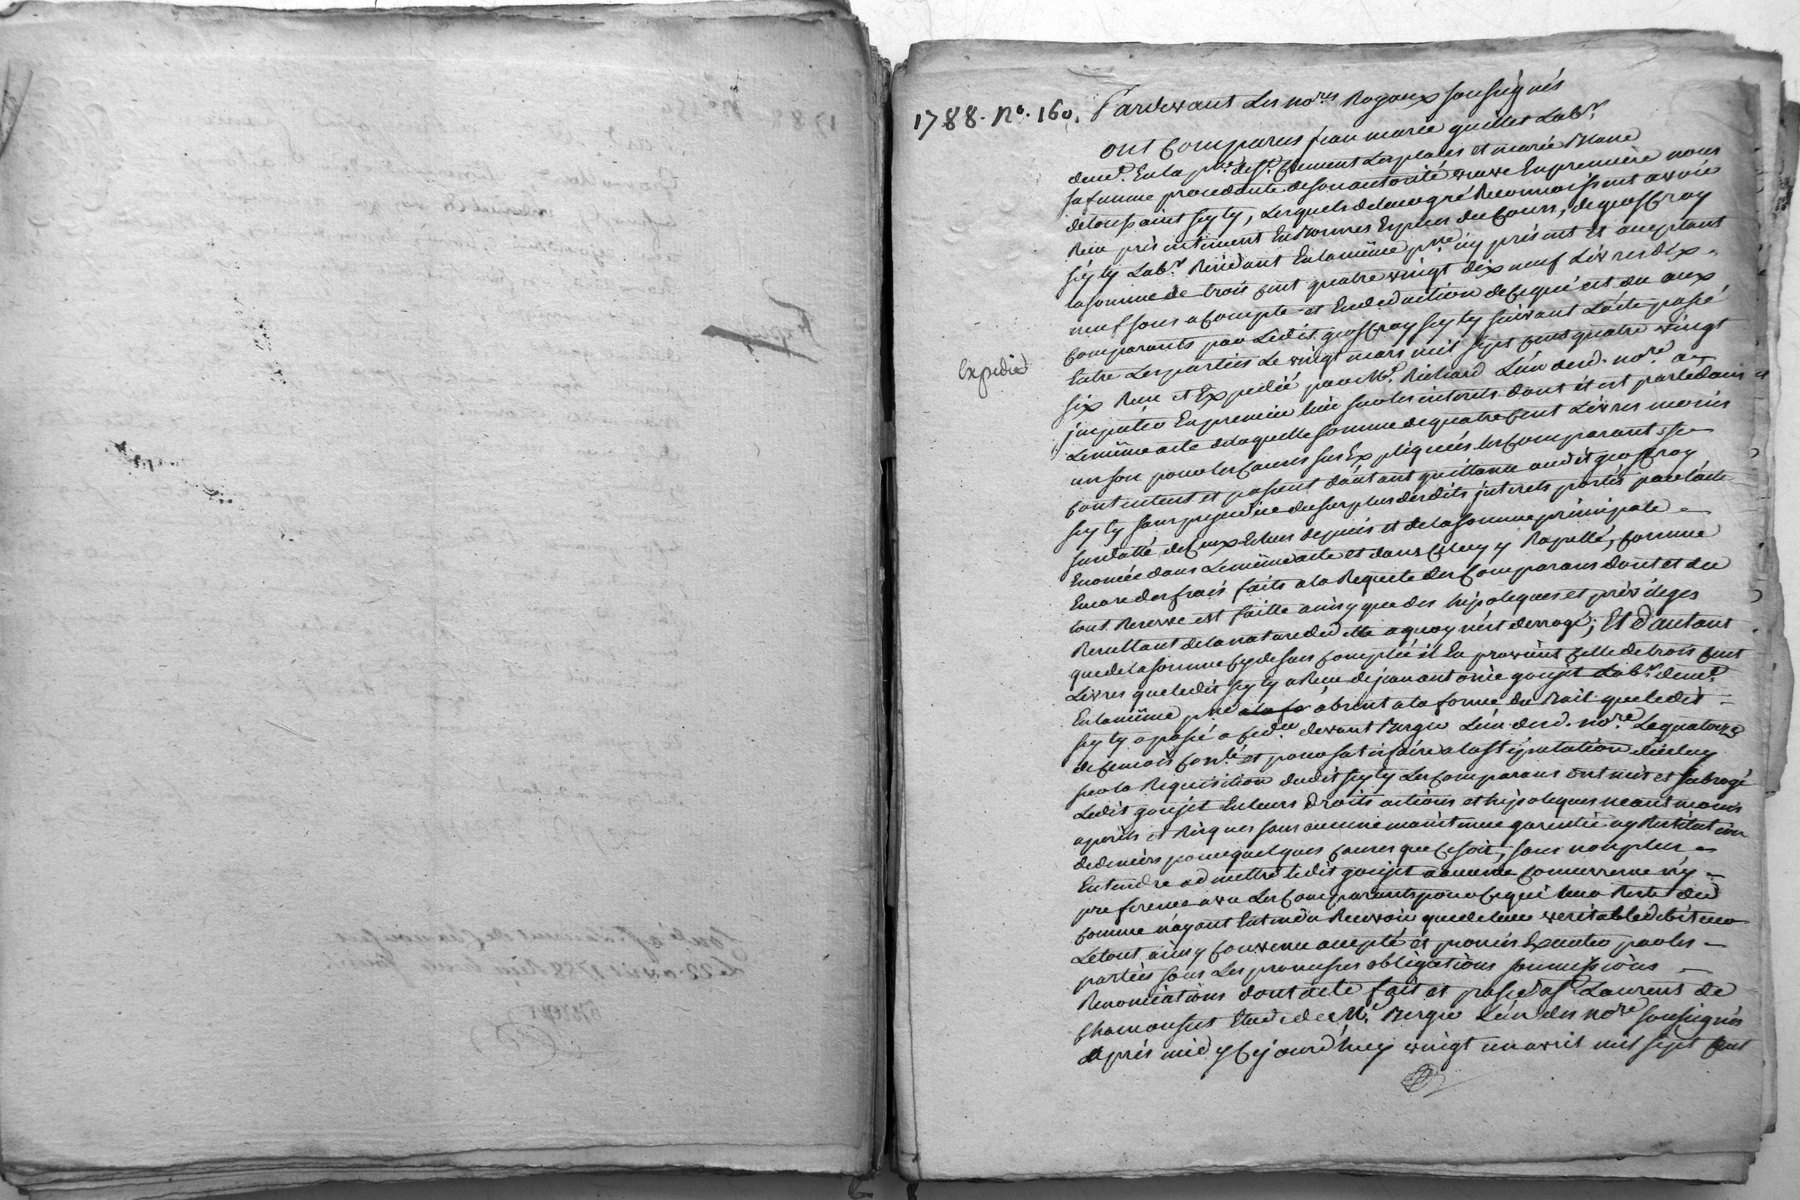 1788. No. 160. Pardevant Les nores Royaux soussignés
ont Comparus jean marie guillet Labr
demt. En la pse. de st. Clement Les places et marie Blanc
sa femme procedante de son autorité veuve En premiere noces
de toussaint seyty, Lesquels de leur gré Reconnoissent avoir
Reçu présentement En Bonnes Espèces du Cours, de geoffray
seyty Labr. Residant En la même pse. icy présent et aceptant
la somme de trois cent quatre vingt dix neuf Livres dix
neuf sous a Compte et En deduction de ce qui est du aux
Comparants par Ledit geoffray seyty suivant L'acte passé
Entre Les parties Le vingt mars mil sept cens quatre vingt
six Reçu et Expedié par Me. Richard L'un desd. nores a
imputer En premier lieu sur les interets dont il est parlé dans
Le même acte de laquelle somme de quatre cent Livres moins
un sou pour les Causes sus Expliquées les Comparants se
Contentent et passent d'autant quittance audit geoffray
seyty sans prejudice du surplus desdits interets portés par l'acte
susdatté de ceux Echus depuis et de la somme principale
Enoncée dans Le même acte et dans Celuy y Rapellé, Comme
Encore des frais faits a la Requete des Comparans dont et du
tout Reserve est faitte ainsy que des hipoteques et privileges
Resultant de la nature de dette a quoy n'est derrogé; Et d'autant
que de la somme cy dessus Comptée il En provient celle de trois cent
Livres que ledit seyty a Reçu de jean antoine goujet Labr. demt.
En la même pse a la fo absent a la forme du Bail que ledit
seyty a passé a ced. devant Bergier L'un desd. nores Le quatorze
de ce mois Conlé. et pour satisfaire a la stipulation d'iceluy
sur la Requisition dudit seyty Les Comparans ont mis et subrogé
Ledit goujet En leurs droits actions et hipoteques neantmoins
a périls et Risques sans aucune maintenue garentie ny Restitution
de deniers pour quelques causes que ce soit, sans non plus
Entendre admettre ledit goujet a aucune Concurrence ny
preference avec Les Comparants pour ce qui leur Reste du
Comme n'ayant Entendu Recevoir que de leur veritable debiteur
Le tout ainsy Convenu accepté et promis Executer par les
parties sous Les promesses obligations soumissions
Renonciations dont acte fait et passé a st. Laurens de
Chamousset Etude de Me. Bergier L'un des nores soussignés
après midy Cejourd'huy vingt un avril mil sept cent
Expedié